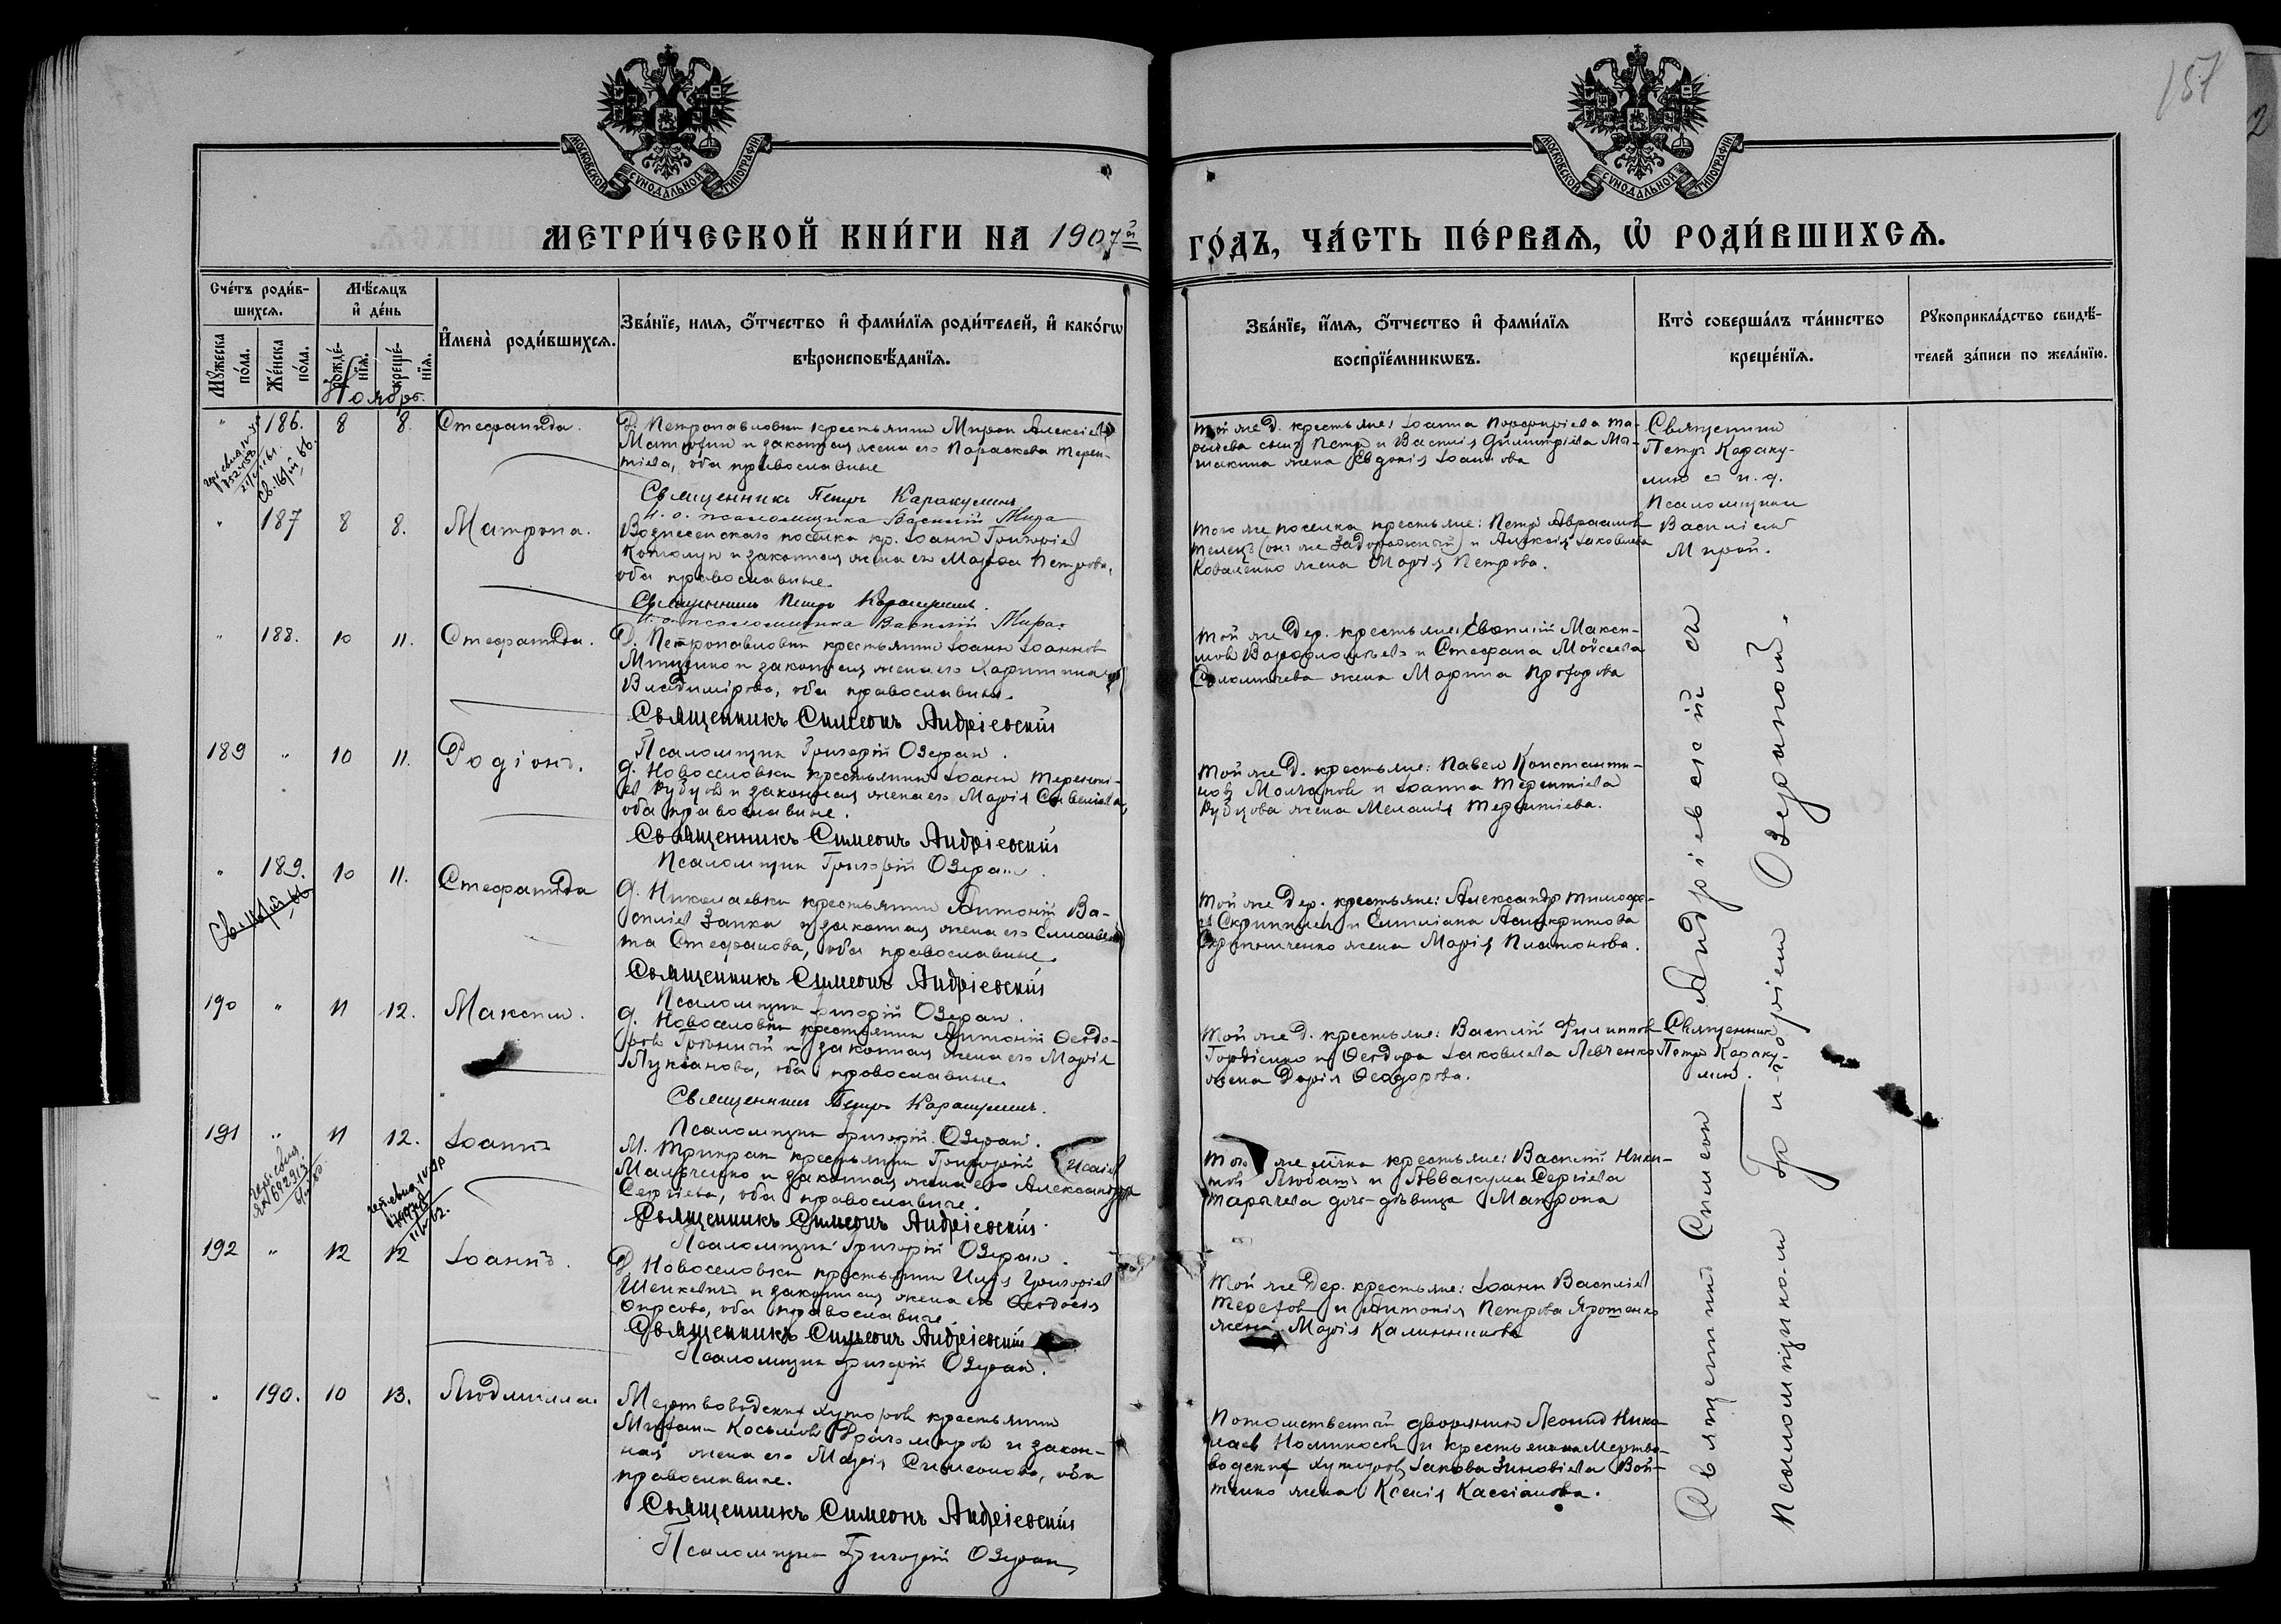 157
2
МОСКОВСКОЙ СѴНОДАЛЬНОЙ ТИПОГРАФІИ.
МОСКОВСКОЙ СѴНОДАЛЬНОЙ ТИПОГРАФІИ.
МЕТРИ́ЧЕСКОЙ КНИ́ГИ НА 1907й
ГО́ДЪ, ЧА́СТЬ ПЕ́РВАЯ, Ѡ҆ РОДИ́ВШИХСЯ.
Сче́тъ роди́в-
шихся.
Мꙋжеска по́ла.
Же́нска по́ла.
Мѣ́сяцъ
и҆ де́нь
рожде́-
нїя.
креще́-
нїя.
И҆мена̀ роди́вшихся.
Зва́нїе, имя, ѻ҆́тчество и҆ фами́лїя роди́телей, и҆ како́гѡ
вѣроисповѣ́данїя.
Зва́нїе, и҆́мя, ѻ҆́тчество и҆ фами́лїя
воспрїе́мникѡвъ.
Кто̀ соверша́лъ та́инство
креще́нїя.
Рꙋкоприкла́дство свидѣ́-
телей за́писи по жела́нїю.
Ноябрь.
" 186. 8 8. Стефанида.
Д. Петропавловки крестьянинъ Миронъ Алексіевъ
и законная жена его Параскева Терен-
тіева, оба православные
Священникъ Петръ Каракулинъ
И. о. псаломщика Василій Мира
Той же д. крестьяне: Іоанна Порфиріева Та-
рычева сынъ Петръ и Василія Димитріева Мо-
жена Евдокія Іоаннова
Священникъ
Петръ Караку-
линъ съ и. д.
псаломщика
Василіемъ
Мирой.
" 187 8 8. Матрона.
Вознесенскаго поселка кр. Іоаннъ Григоріевъ
и законная жена его Марѳа Петрова,
оба православные.
Священникъ Петръ Каракулинъ.
И. о. псаломщика Василій Мира.
Того же поселка крестьяне: Петръ Авраамовъ
Телецъ (онъ же Задорожный) и Алексія Іаковлева
Коваленко жена Марія Петрова.
" 188. 10 11. Стефанида.
Д. Петропавловки крестьянинъ Іоаннъ Іоанновъ
Мищенко и законная жена его Харитина
Владимірова, оба православные.
Священникъ Симеонъ Андріевскій
Псаломщикъ Григорій Озеран.
Той же дер. крестьяне: Евѳимій Макси-
мовъ Варѳоломѣевъ и Стефана Моисеева
жена Марина Прохорова
Священникъ Симеонъ Андріевскій съ
псаломщикомъ Григоріемъ Озераной.
189 " 10 11. Родіонъ.
д. Новоселовки крестьянинъ Іоаннъ Терентi-
евъ Рубцовъ и законная жена его Марія Савельева,
оба православные.
Священникъ Симеонъ Андріевскій
Псаломщикъ Григорій Озеран.
Той же д. крестьяне: Павелъ Константи-
новъ Молчановъ и Іоанна Терентіева
Рубцова жена Меланія Терентіева.
" 189. 10 11. Стефанида
д. Николаевки крестьянинъ Антоній Ва-
силіевъ Заика и законная жена его Елисаве-
та Стефанова, оба православные.
Священникъ Симеонъ Андріевскій
Псаломщикъ Григорій Озеран.
Той же дер. крестьяне: Александръ Тимоѳе-
евъ и Емиліана
жена Марія Платонова.
190 " 11 12. Максимъ.
д. Новоселовки крестьянинъ Антоній Ѳеодо-
ровъ и законная жена его Марія
Лукіанова, оба православные.
Священникъ Петръ Каракулинъ.
Псаломщикъ Григорій Озеран.
Той же д. крестьяне: Василій Филипповъ
Гордіенко и Ѳеодора Іаковлева Левченко
жена Дарія Ѳеодорова.
Священникъ
Петръ Караку-
линъ.
191 " 11 12. Іоаннъ
М. Трикратъ крестьянинъ Григорій Исаіевъ
Мальченко и законная жена его Александра
Сергіева, оба православные.
Священникъ Симеонъ Андріевскій.
Псаломщикъ Григорій Озеран.
Того же м-чка крестьяне: Василій Ники-
товъ и Аввакума Сергіева
Тарычева дочь-дѣвица Матрона
192 " 12 12 Іоаннъ.
Д. Новоселовки крестьянинъ Илія Григоріевъ
Шенкевичъ и законная жена его Ѳеодосія
Ѳирсова, оба православные.
Священникъ Симеонъ Андріевскій
Псаломщикъ Григорій Озеран.
Той же дер. крестьяне: Іоаннъ Василіевъ
Тереховъ и Антонія Петрова Ярошенко
жена Марія Калинникова
" 190. 10 13. Людмилла.
Мертвоводскихъ хуторовъ крестьянинъ
Михаилъ Косьминъ и закон-
ная жена его Марія Симеонова, оба
православные.
Священникъ Симеонъ Андріевскій
Псаломщикъ Григорій Озеран
Потомственный дворянинъ Леонидъ Нико-
лаевъ и крестьянина Мертво-
водскихъ хуторовъ Іакова Зиновіева Вой-
тенко жена Ксенія Кассіанова.